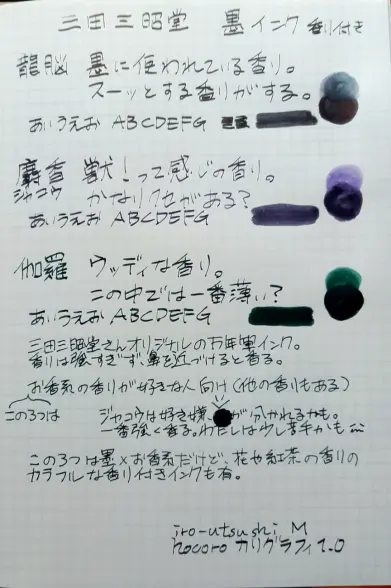 三田三昭堂 墨インク 香り付き
龍脳 墨に使われている香り。
スーッとする香りがする。
あいうえお ABCDEFG
麝香 獣！って感じの香り。
ジャコウ かなりクセがある？
あいうえお ABCDEFG
伽羅 ウッディな香り。
この中では一番薄い？
あいうえお ABCDEFG
三田三昭堂さんオリジナルの万年筆インク。
香りは強すぎず、鼻を近づけると香る。
お香系の香りが好きな人向け（他の香りもある）
この3つは
ジャコウは好き嫌いが分かれるかも。
一番強く香る。わたしは少し苦手かも
この3つは墨×お香系だけど、花や紅茶の香りの
カラフルな香り付きインクも有。
iro-utsushi M
hocoro カリグラフィ1.0